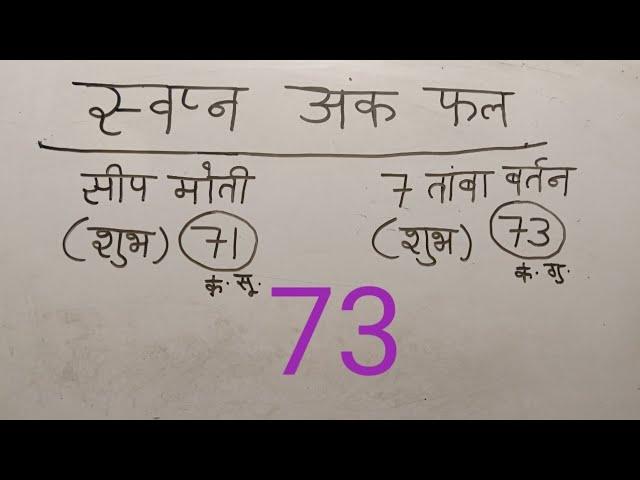 स्वप्न अंक फल
सीप मोती
(शुभ) 71
कं. सू.
7 तांबा बर्तन
(शुभ) 73
कं. गु.
73